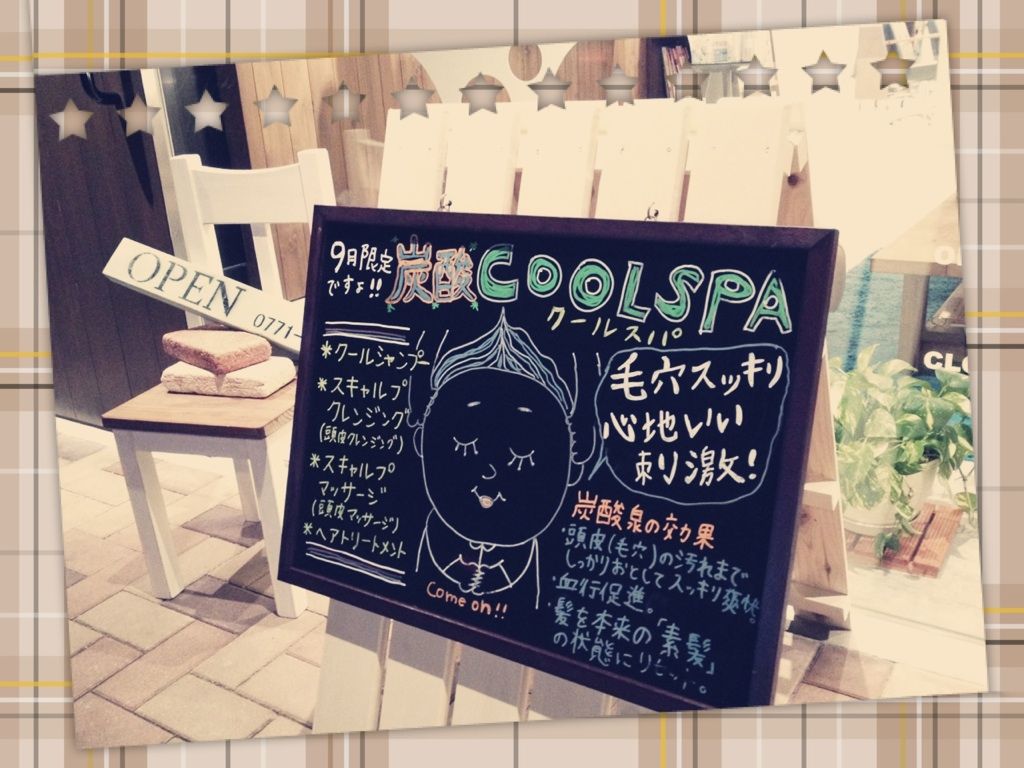 OPEN
0771-
9月限定
ですよ!!
炭酸COOLSPA
クールスパ
*クールシャンプー
*スキャルプ
クレンジング
(頭皮クレンジング)
*スキャルプ
マッサージ
(頭皮マッサージ)
*ヘアトリートメント
Come on!!
毛穴スッキリ
心地いい
刺激!
炭酸泉の効果
・頭皮(毛穴)の汚れまで
しっかりおとしてスッキリ爽快。
・血行促進。
・髪を本来の「素髪」
の状態にリセット。
CLO